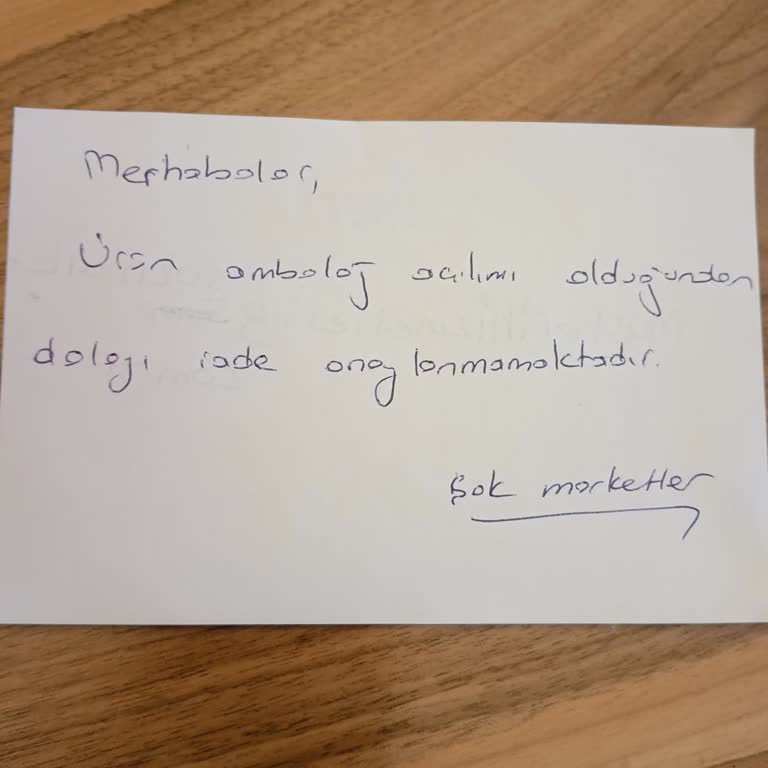 Merhabalar,
Ürün ambalaj açılımı olduğundan
dolayı iade onaylanmamaktadır.
Şok marketler